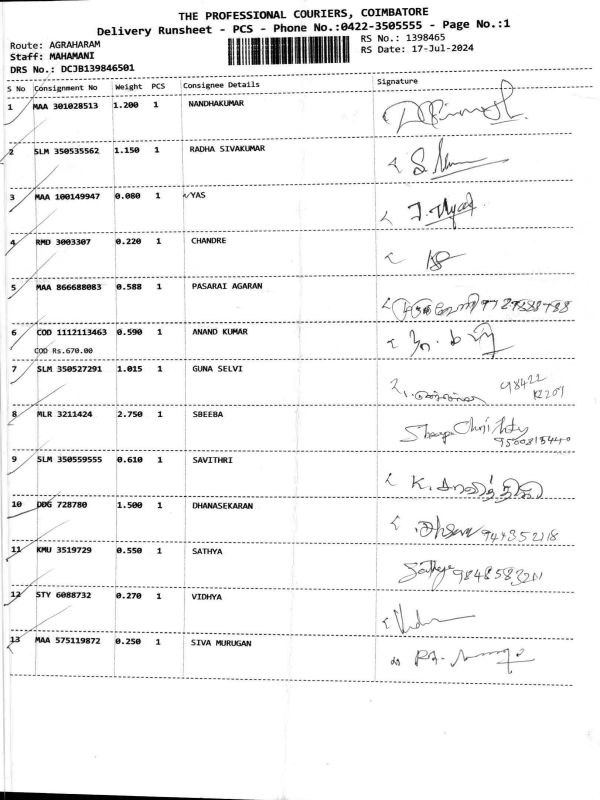 THE PROFESSIONAL COURIERS, COIMBATORE
Delivery Runsheet - PCS - Phone No.:0422-3505555 - Page No.:1
Route: AGRAHARAM
RS No.: 1398465
Staff: MAHAMANI
RS Date: 17-Jul-2024
DRS No.: DCJB139846501
S No Consignment No Weight PCS Consignee Details Signature
1 MAA 301028513 1.200 1 NANDHAKUMAR
2 SLM 350535562 1.150 1 RADHA SIVAKUMAR
3 MAA 100149947 0.080 1 YAS
4 RMD 3003307 0.220 1 CHANDRE
5 MAA 866688083 0.588 1 PASARAI AGARAN
6 COD 1112113463 0.590 1 ANAND KUMAR
COD Rs.670.00
7 SLM 350527291 1.015 1 GUNA SELVI
8 MLR 3211424 2.750 1 SBEEBA
9 SLM 350559555 0.610 1 SAVITHRI
10 DDG 728780 1.500 1 DHANASEKARAN
11 KMU 3519729 0.550 1 SATHYA Sathya
12 STY 6088732 0.270 1 VIDHYA
13 MAA 575119872 0.250 1 SIVA MURUGAN